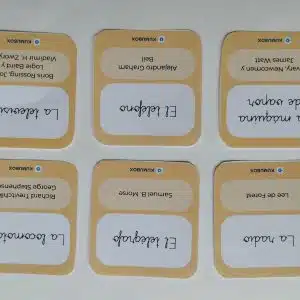 La radio
Lee de Forest
KUMUBOX
El telégrafo
Samuel B. Morse
KUMUBOX
La locomoto
Richard Trevithick
George Stephens
KUMUBOX
a máquina
de vapor
very, Newcomen y
James Watt
KUMUBOX
El teléfono
Alejandro Graham
Bell
KUMUBOX
La televisi
Boris Rossing, Jo
Logie Baird y
Vladimir H. Zwory
KUMUBOX